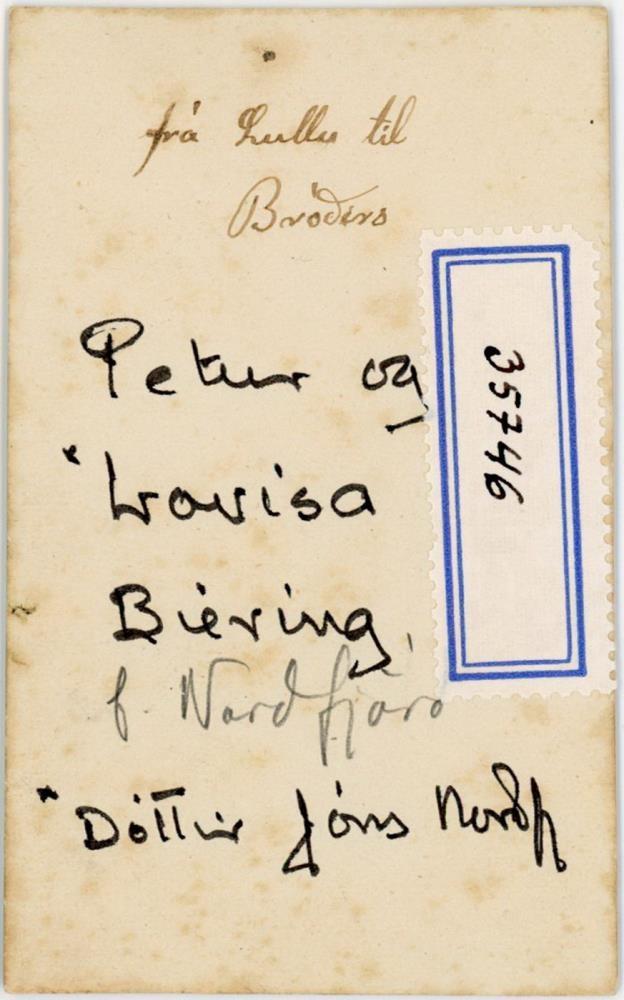 frá Lullu til
Bróders
Petur og
"Lovisa
Biering,
f. Nordfjörd
"Dóttir Jóns Nordfj
35746